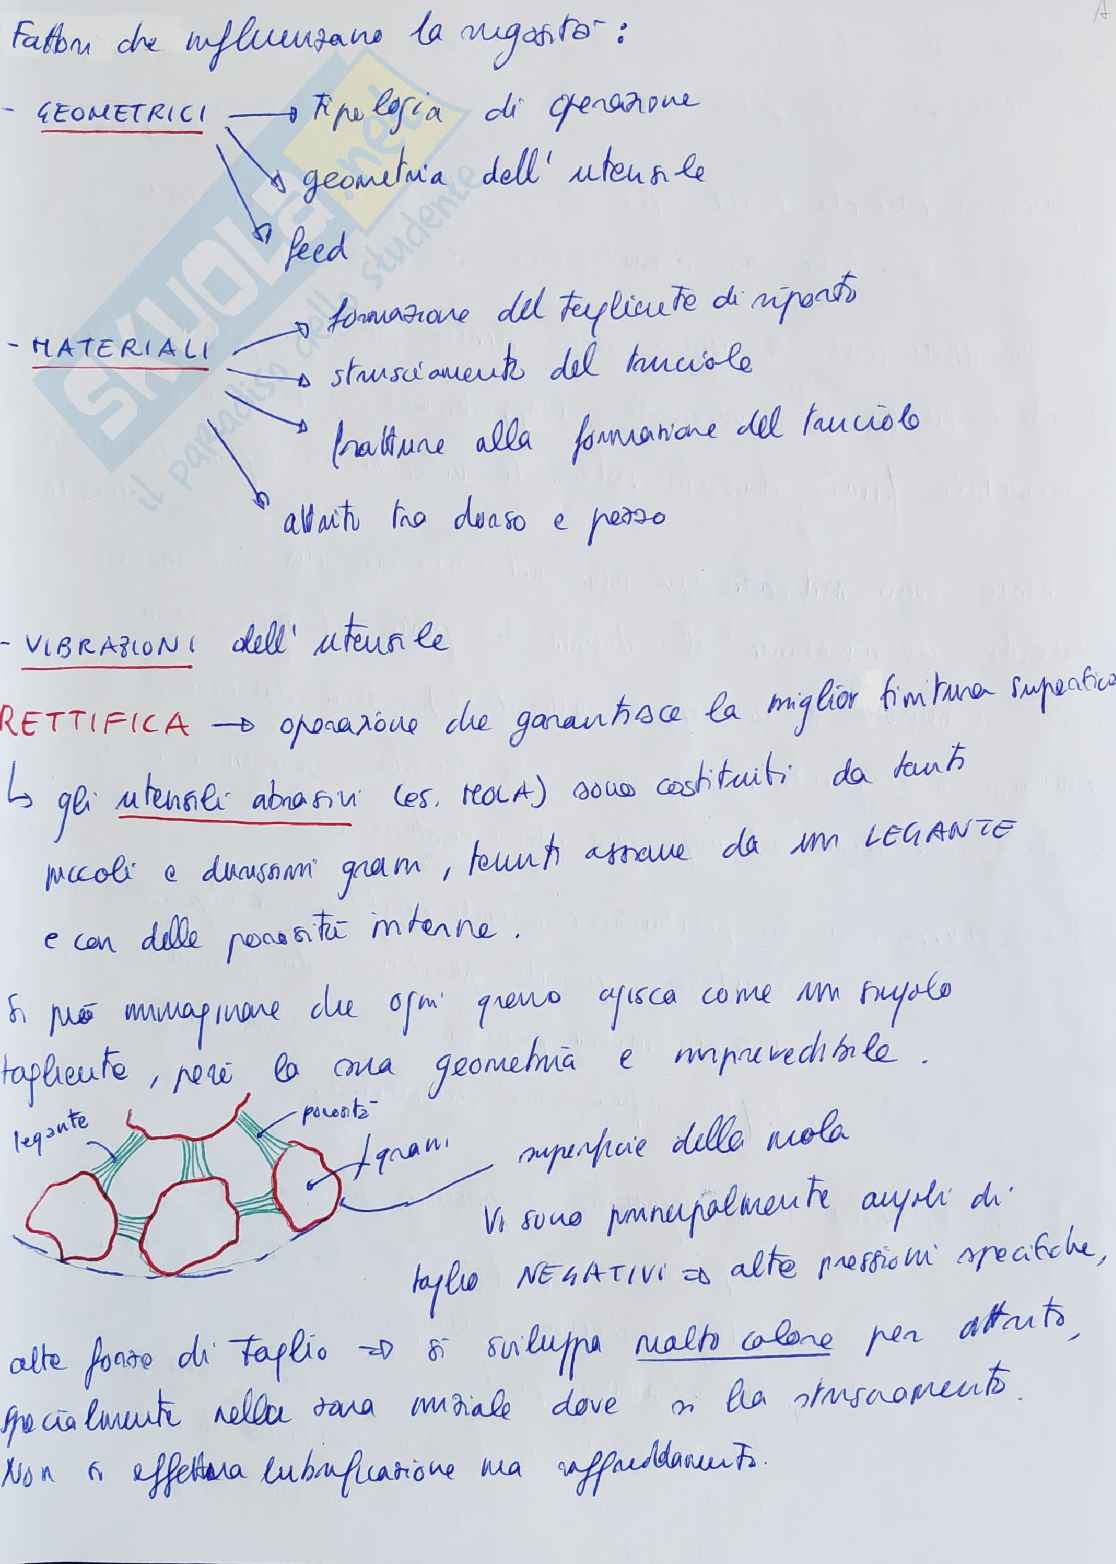 Fattori che influenzano la rugosità:
- GEOMETRICI → tipologia di operazione
geometria dell'utensile
feed
- MATERIALI → formazione del tagliente di riporto
strusciamento del truciolo
fratture alla formazione del truciolo
attrito tra dorso e pezzo
- VIBRAZIONI dell'utensile
RETTIFICA → operazione che garantisce la miglior finitura superficiale
↳ gli utensili abrasivi (es. MOLA) sono costituiti da tanti
piccoli e durissimi grani, tenuti assieme da un LEGANTE
e con delle porosità interne.
Si può immaginare che ogni grano agisca come un singolo
tagliente, però la sua geometria è imprevedibile.
legante
porosità
grani
superficie della mola
Vi sono principalmente angoli di
taglio NEGATIVI ⇒ alte pressioni specifiche,
alte forze di taglio ⇒ si sviluppa molto calore per attrito,
specialmente nella zona iniziale dove si ha strusciamento.
Non si effettua lubrificazione ma raffreddamento.
SKUOLA.net
il paradiso dello studente